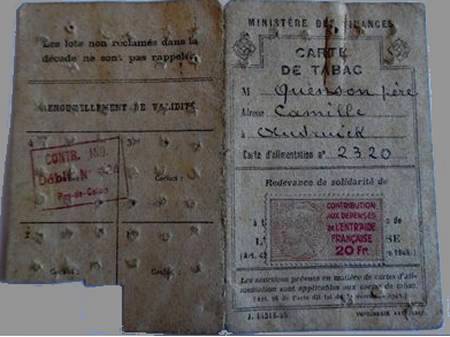 Les lots non réclamés dans la
décade ne sont pas rappelés
RENOUVELLEMENT DE VALIDITÉ
CONTR. IND.
Débit. N°
Pas-de-Calais
Cachet :
Cachet :
Cachet :
MINISTÈRE DES FINANCES
CARTE
DE TABAC
M Quenson père
Adresse Camille
à Audruick
Carte d'alimentation n° 2320
Redevance de solidarité de
CONTRIBUTION
AUX DÉPENSES
DE L'ENTR'AIDE
FRANÇAISE
20 Fr.
Les sanctions prévues en matière de cartes d'ali-
mentation sont applicables aux cartes de tabac.